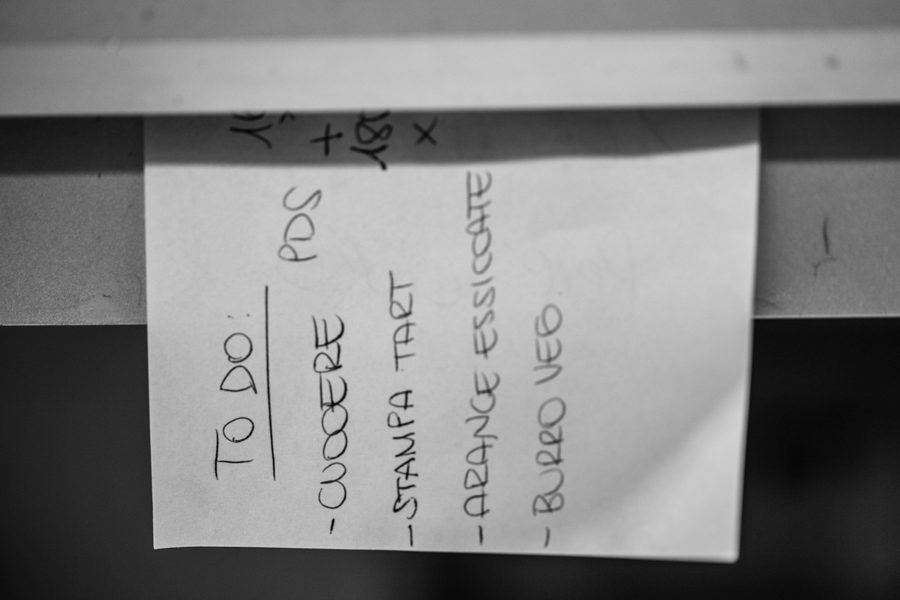 TO DO:
- CUOCERE PDS +
- STAMPA TART 180
- ARANCE ESSICCATE X
- BURRO VEG.